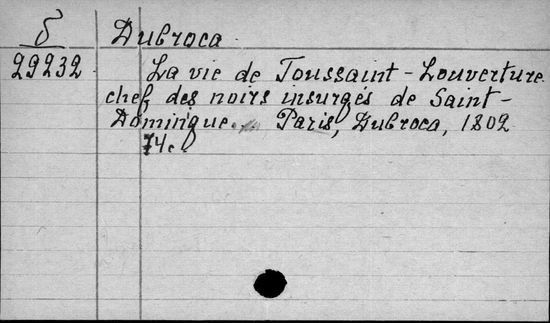 δ Dubroca
29232 La vie de Toussaint-Louverture
chef des noirs insurgés de Saint-
Domingue. Paris, Dubroca, 1802
74c.